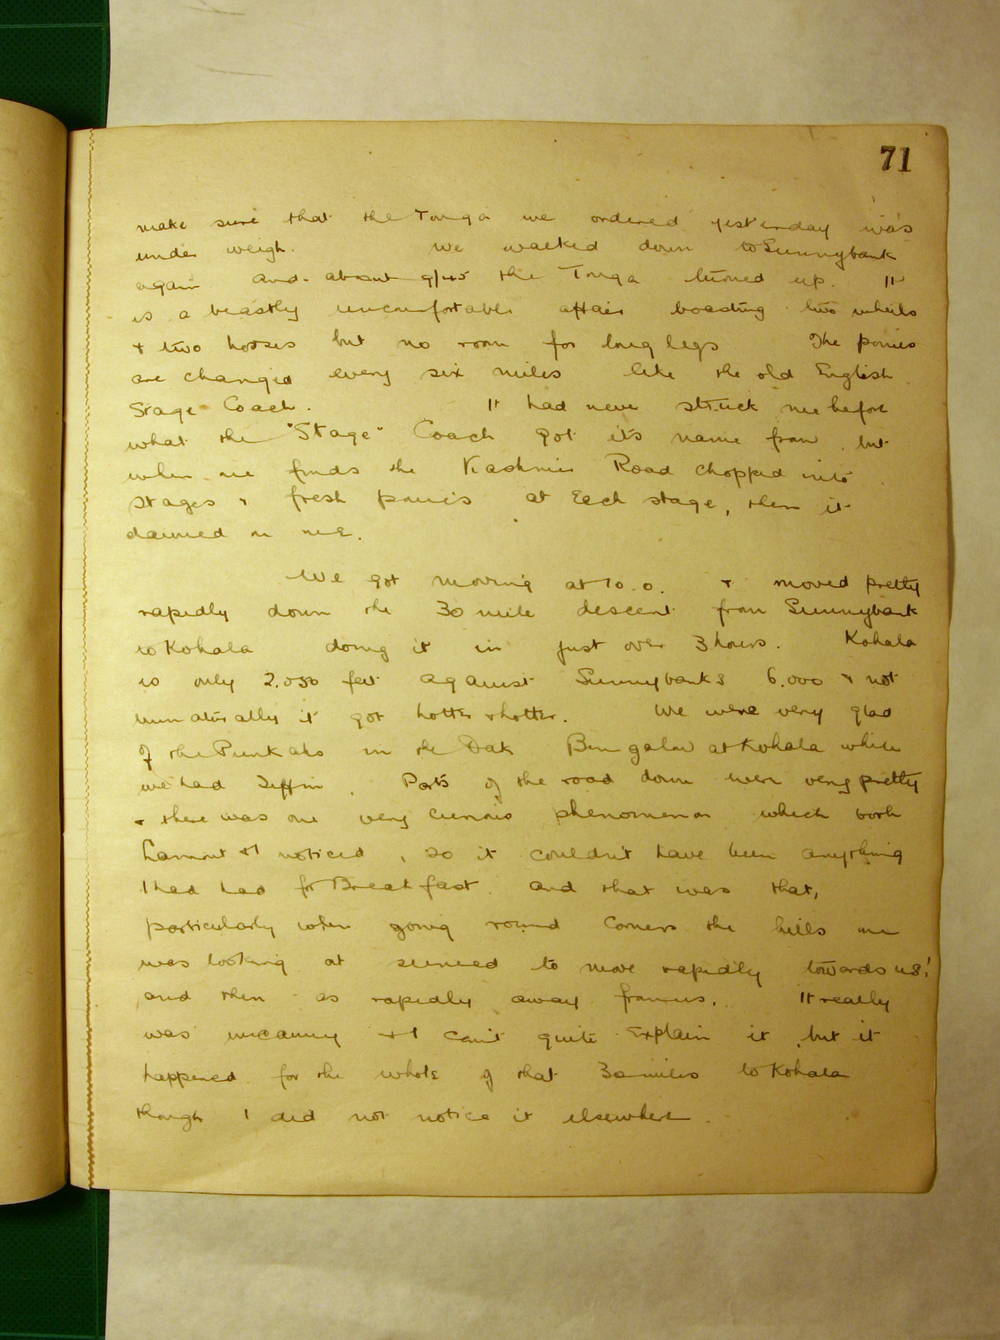 71
make sure that the Tonga we ordered yesterday was
under weigh. We walked down to Sunnybank
again and about 9/45 the Tonga turned up. It
is a beastly uncomfortable affair boasting two wheels
+ two horses but no room for long legs The ponies
are changed every six miles like the old English
Stage Coach. It had never struck me before
what the "Stage" Coach got its name from, but
when one finds the Kashmir Road chopped into
stages + fresh ponies at Each stage, then it
dawned on me.
We got moving at 10.0. + moved pretty
rapidly down the 30 mile descent from Sunnybank
to Kohala doing it in just over 3 hours. Kohala
is only 2.000 feet against Sunnybank's 6.000 + not
unnaturally it got hotter + hotter. We were very glad
of the Punkahs in the Dak Bungalow at Kohala while
we had Tiffin. Parts of the road down were very pretty
+ there was one very curious phenomenon which both
Lamont + I noticed, so it couldn't have been anything
I had had for Breakfast and that was that,
particularly when going round Corners the hills one
was looking at seemed to move rapidly towards us!
and then as rapidly away from us. It really
was uncanny + I can't quite Explain it but it
happened for the whole of that 30 miles to Kohala
though I did not notice it elsewhere.